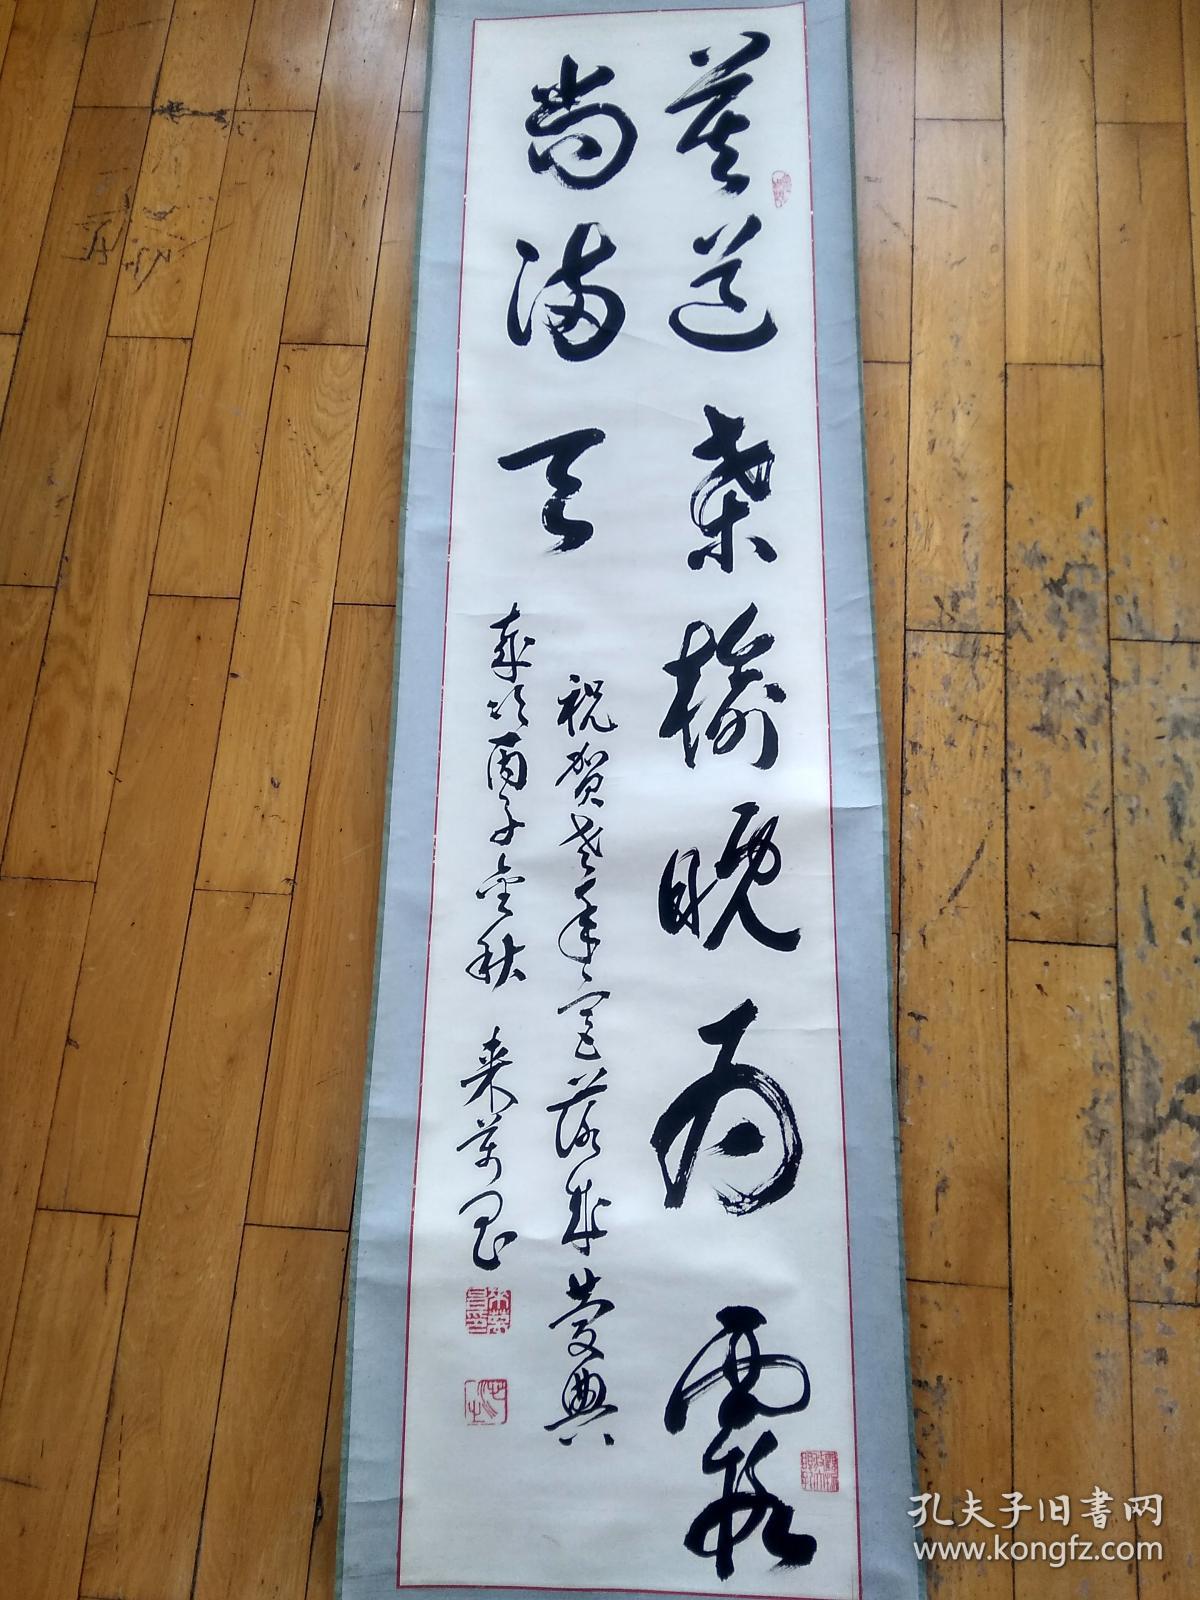 莫道桑榆晚为霞
尚满天
祝贺老年宫落成庆典
岁次丙子金秋 来万
孔夫子旧書网
www.kongfz.com